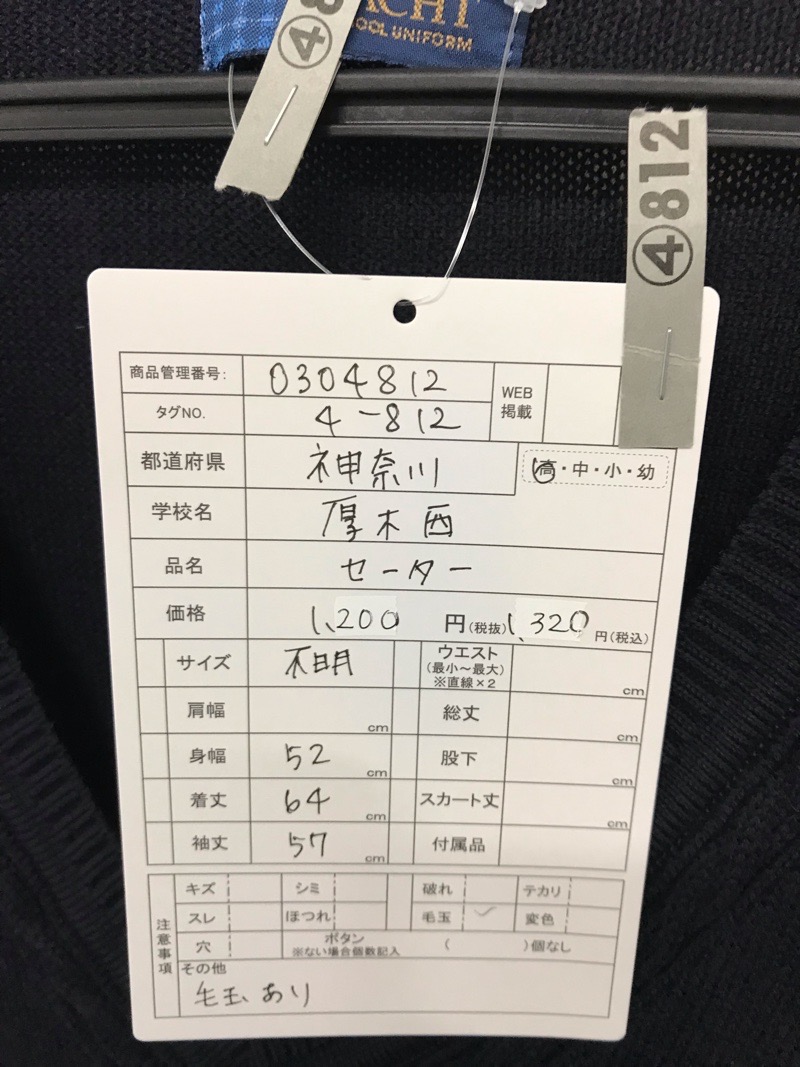 ACHT
OOL UNIFORM
④8
④812
商品管理番号: 0304812 WEB掲載
タグNO. 4-812
都道府県 神奈川 高・中・小・幼
学校名 厚木西
品名 セーター
価格 1,200 円(税抜) 1,320 円(税込)
サイズ 不明 ウエスト(最小～最大)※直線×2 cm
肩幅 cm 総丈 cm
身幅 52 cm 股下 cm
着丈 64 cm スカート丈 cm
袖丈 57 cm 付属品
注意事項
キズ シミ 破れ テカリ
スレ ほつれ 毛玉 ✓ 変色
穴 ボタン ※ない場合個数記入 ( )個なし
その他
毛玉あり